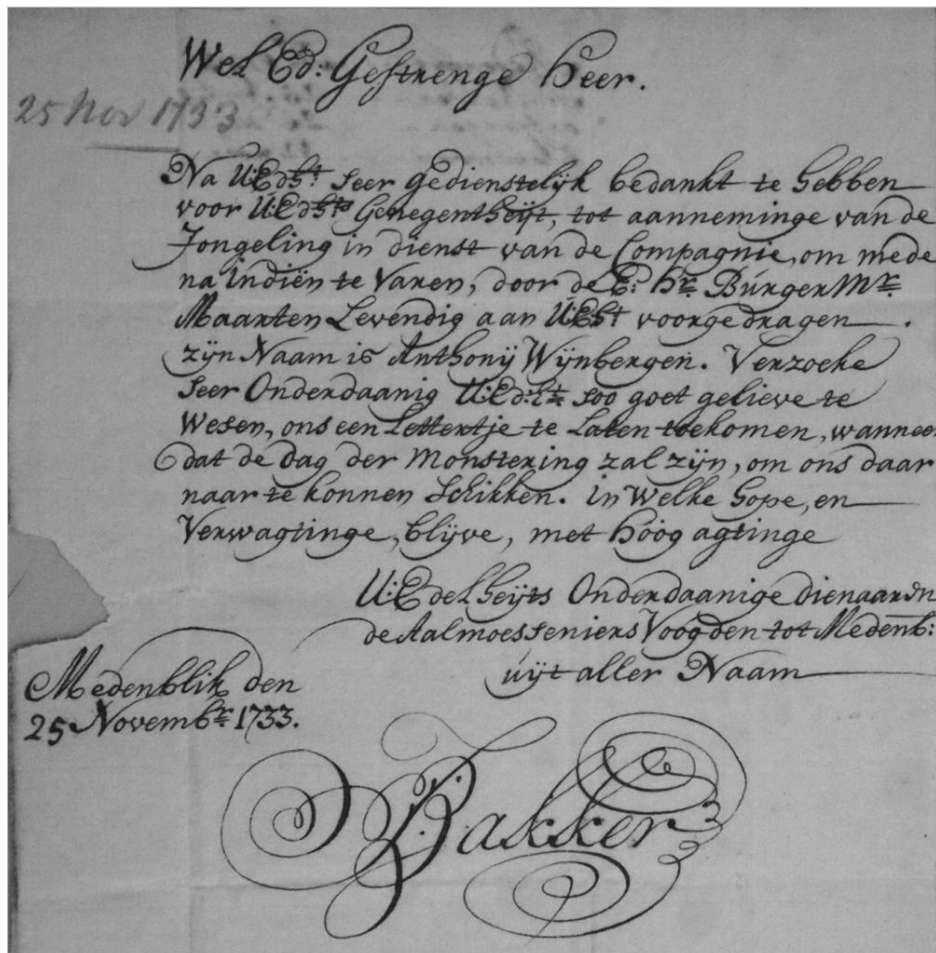 Wel Ed: Gestrenge Heer.
25 Nov 1733
Na U:Edht: seer gedienstelijk bedankt te hebben
voor U:Edhts Genegentheijt, tot aanneminge van de
Jongeling in dienst van de Compagnie, om mede
na indiën te Varen, door de E: Hr: BurgerMr:
Maarten Levendig aan UEht voorgedragen.
zijn Naam is Anthonij Wijnbergen. Verzoeke
seer Onderdaanig soo goet gelieve te
Wesen, ons een Lettertje te Laten toekomen, wanneer
dat de dag der Monstering zal zijn, om ons daar
naar te konnen schikken. in Welke hope, en
Verwagtinge, blijve, met hoog agtinge
U:Edelheijts Onderdaanige dienaaren
de Aalmoesseniers Voogden tot Medenb:
uijt aller Naam
Medenblik den
25 Novembr: 1733.
Bakker